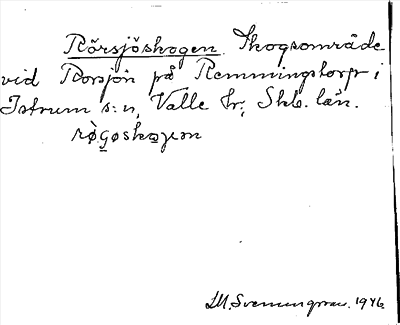 Rörsjöskogen Skogsområde
vid Rörsjön på Remmingstorp i
Istrum s:n, Valle hr, Skb. län.
LM. Svenungsson. 1946